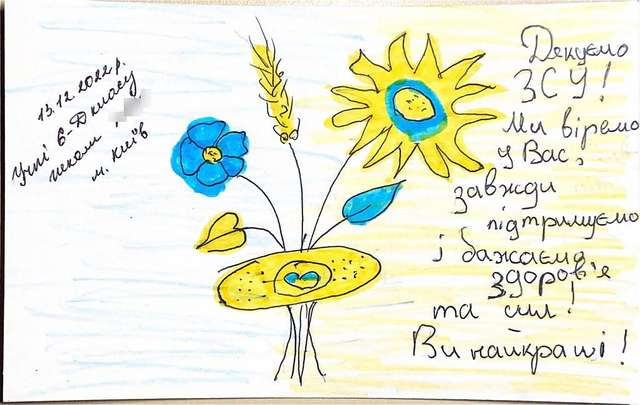 13.12.2022 р.
Учні 6-Д класу
школи
м. Київ
Дякуємо
ЗСУ!
Ми віримо
у Вас,
завжди
підтримуємо
і бажаємо
здоров'я
та сил!
Ви найкращі!